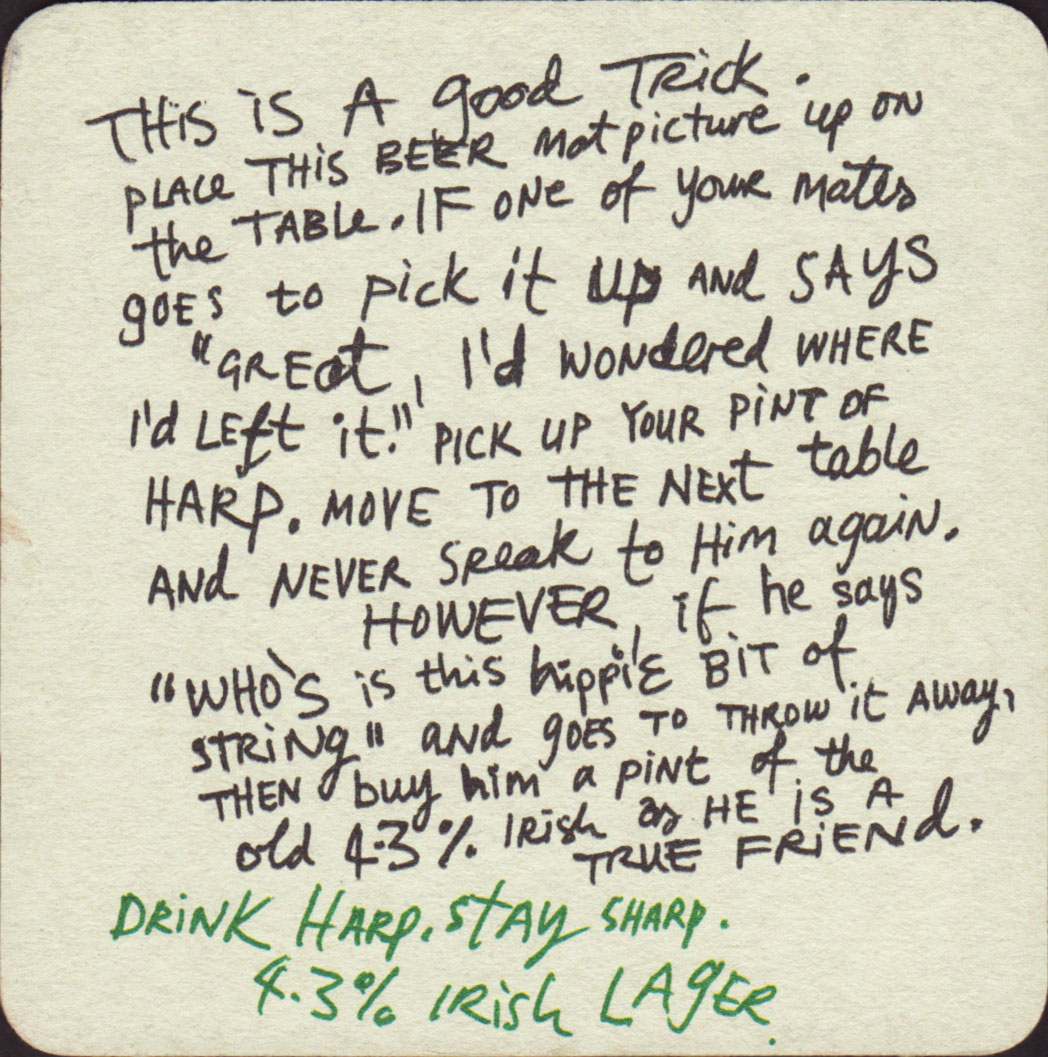 THiS iS A good TRick.
PLACe THiS BEER Mat picture up ON
the TABLe. IF ONe of your Mates
gOES to pick it Up AND SAYS
"GREat, I'd WONdered WHERE
I'd LEft it!" PICK UP YOUR PiNT OF
HARP. MOVE TO THE NEXt table
AND NEVER Speak to Him again.
HOWEVER, if he says
"WHO'S is this hippiE BiT of
STRiNg" aND gOES TO THROW it AWAY,
THEN buy him a PiNT of the
old 4.3% IRisH as HE iS A
TRUE FRiENd.
DRiNK HARP. STAY SHARP.
4.3% IRisH LAgER.